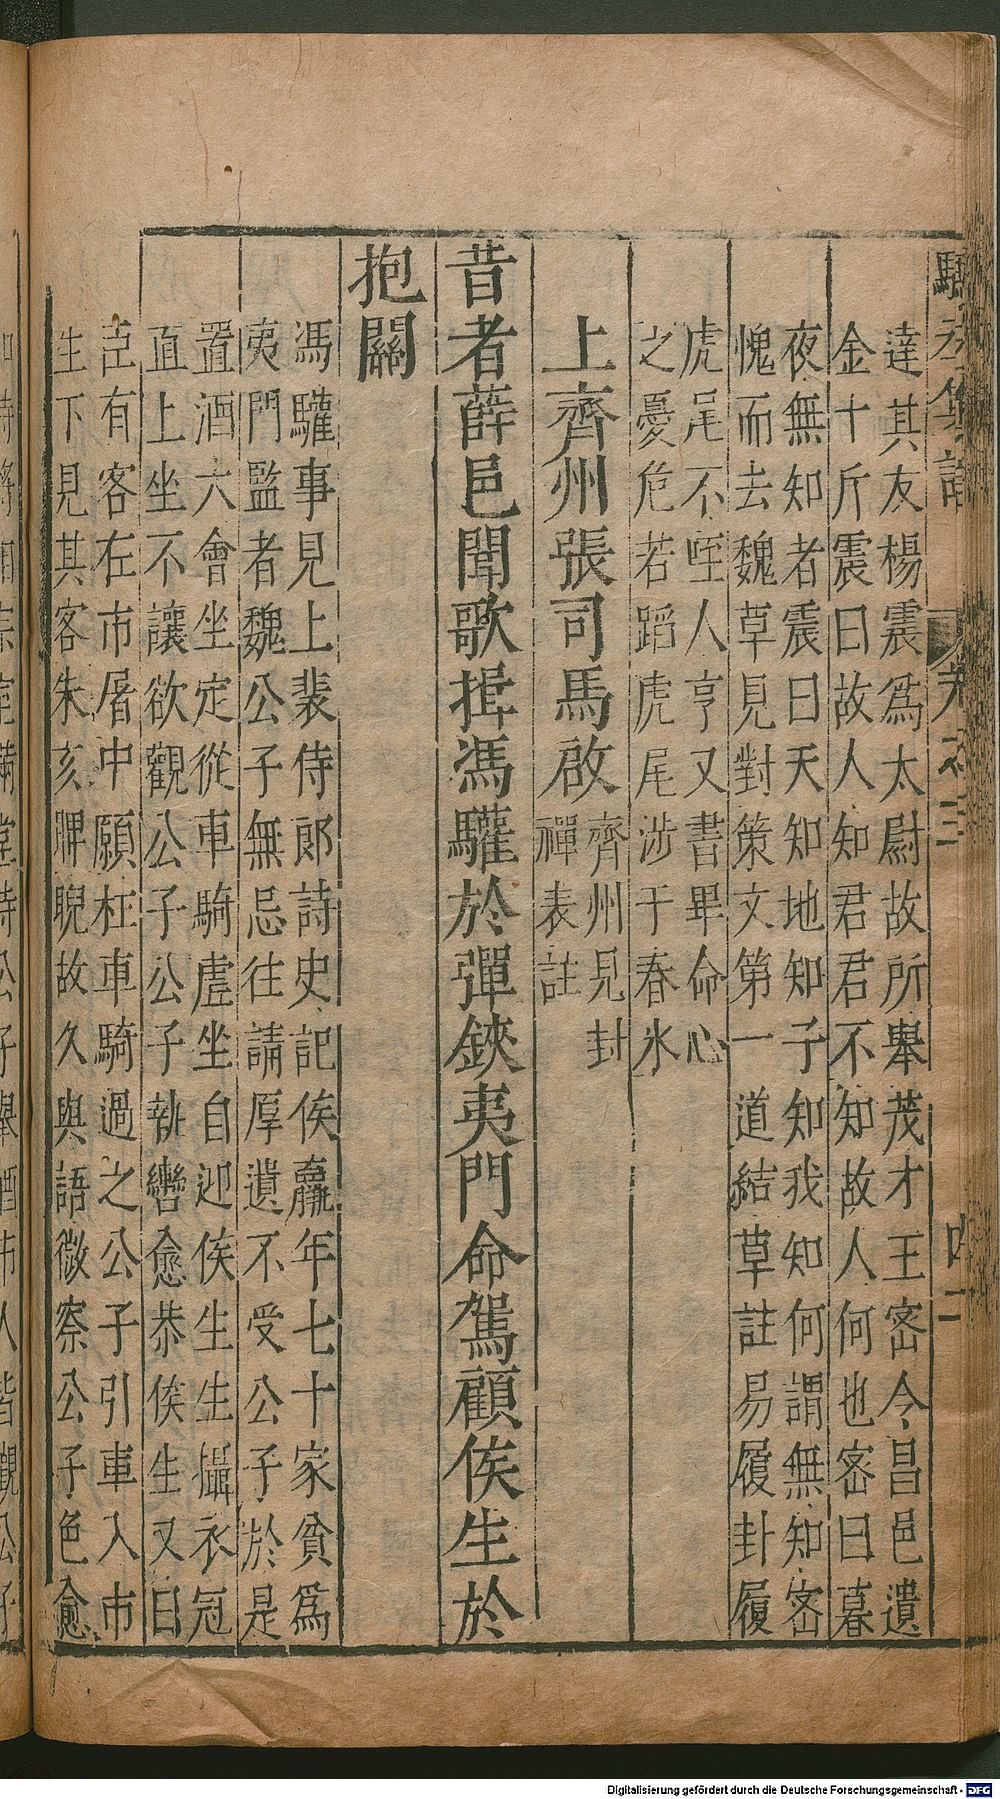 達其友楊震爲太尉故所舉茂才王宻令昌邑遺
金十斤震曰故人知君君不知故人何也宻曰暮
夜無知者震曰天知地知子知我知何謂無知宻
愧而去魏草見對策文第一道結草註易履卦履
虎尾不咥人亨又書畢命心
之憂危若蹈虎尾涉于春氷
上齊州張司馬啟
齊州見封
禪表註
昔者薛邑聞歌揖馮驩於彈鋏夷門命駕顧侯生於
抱關
馮驩事見上裴侍郎詩史記侯嬴年七十家貧爲
夷門監者魏公子無忌往請厚遺不受公子於是
置酒大會坐定從車騎虛坐自迎侯生生攝衣冠
直上坐不讓欲觀公子公子執轡愈恭侯生又曰
臣有客在市屠中願枉車騎過之公子引車入市
生下見其客朱亥睥睨故久與語微察公子色愈
Digitalisierung gefördert durch die Deutsche Forschungsgemeinschaft - DFG